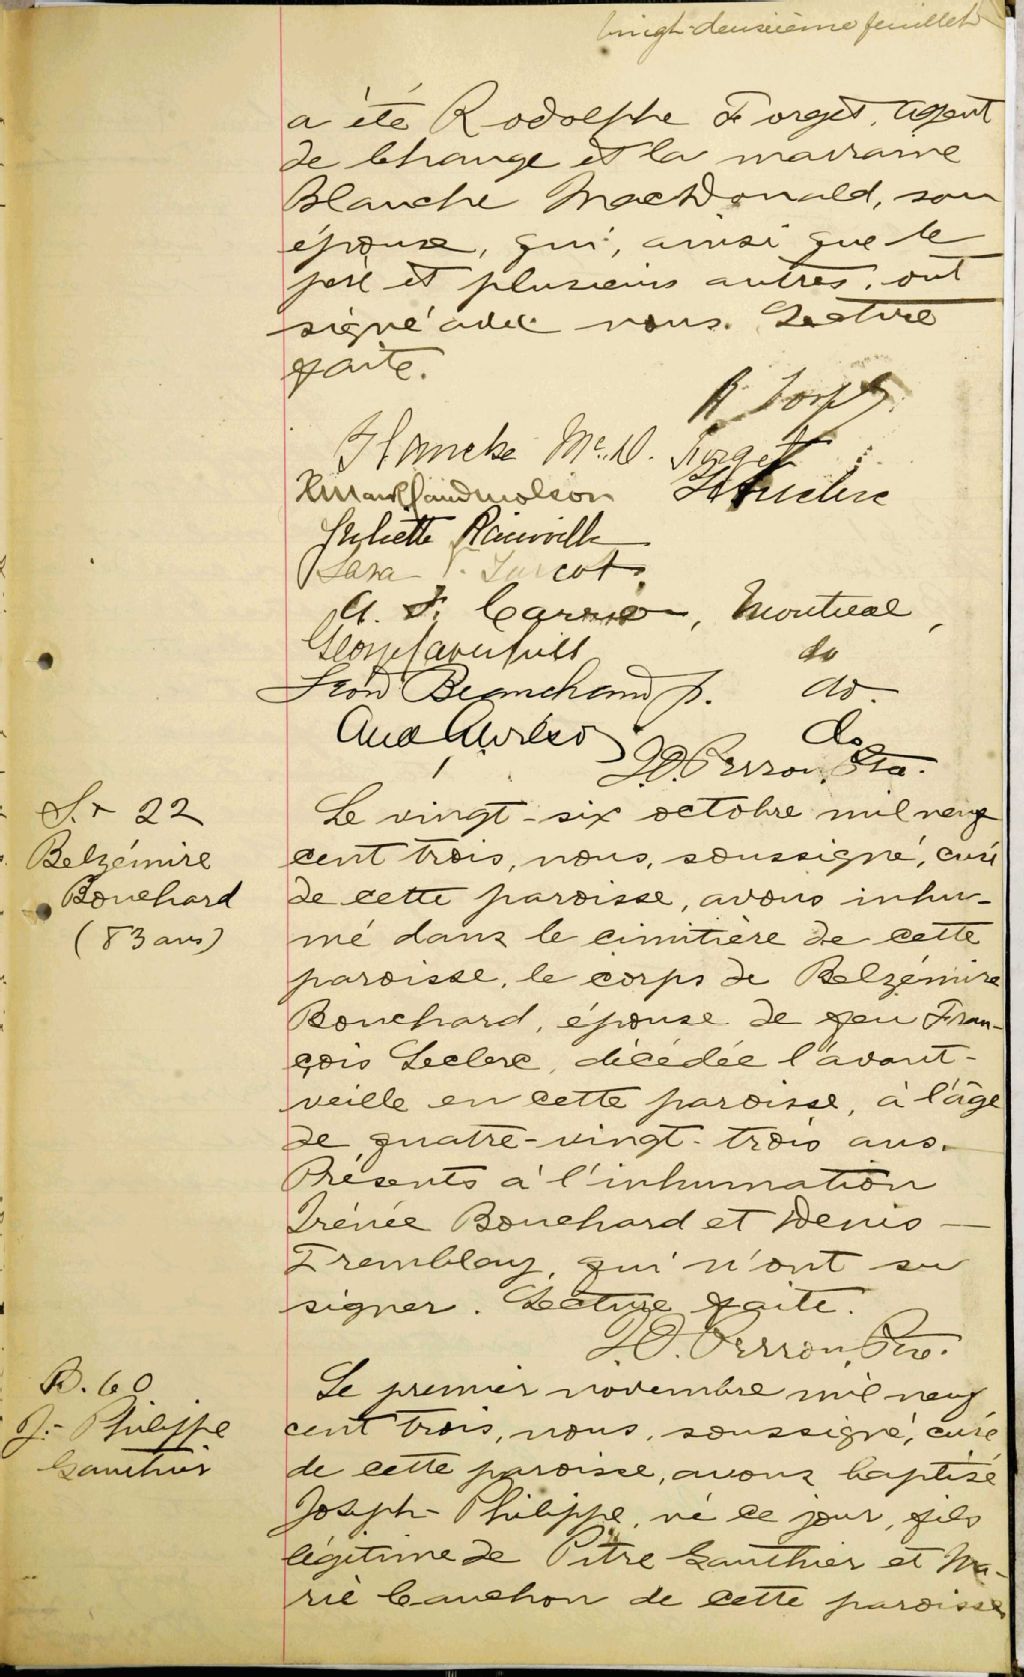 vingt-deuxième feuillet
a été Rodolphe Forget, agent
de change et la marraine
Blanche MacDonald, son
épouse, qui, ainsi que le
père et plusieurs autres, ont
signé avec nous. Lecture
faite.
R Forget
Blanche Mc.D. Forget
Leclerc
Juliette Rainville
Sara Turcot
A. F. Carrier, Montreal,
do
Léon Beauchamp jr. do.
do
J.O. Perron, Ptre.
S. + 22
Belzémire
Bouchard
(83 ans)
Le vingt-six octobre mil neuf
cent trois, nous, soussigné, curé
de cette paroisse, avons inhu-
mé dans le cimitière de cette
paroisse, le corps de Belzémire
Bouchard, épouse de feu Fran-
çois Leclerc, décédée l'avant-
veille en cette paroisse, à l'âge
de quatre-vingt-trois ans.
Présents à l'inhumation
Irénée Bouchard et Denis
Tremblay, qui n'ont su
signer. Lecture faite.
J.O. Perron, Ptre.
B. 60
J.-Philippe
Gauthier
Le premier novembre mil neuf
cent trois, nous, soussigné, curé
de cette paroisse, avons baptisé
Joseph-Philippe, né ce jour, fils
légitime de Pitre Gauthier et Ma-
rie Cauchon de cette paroisse